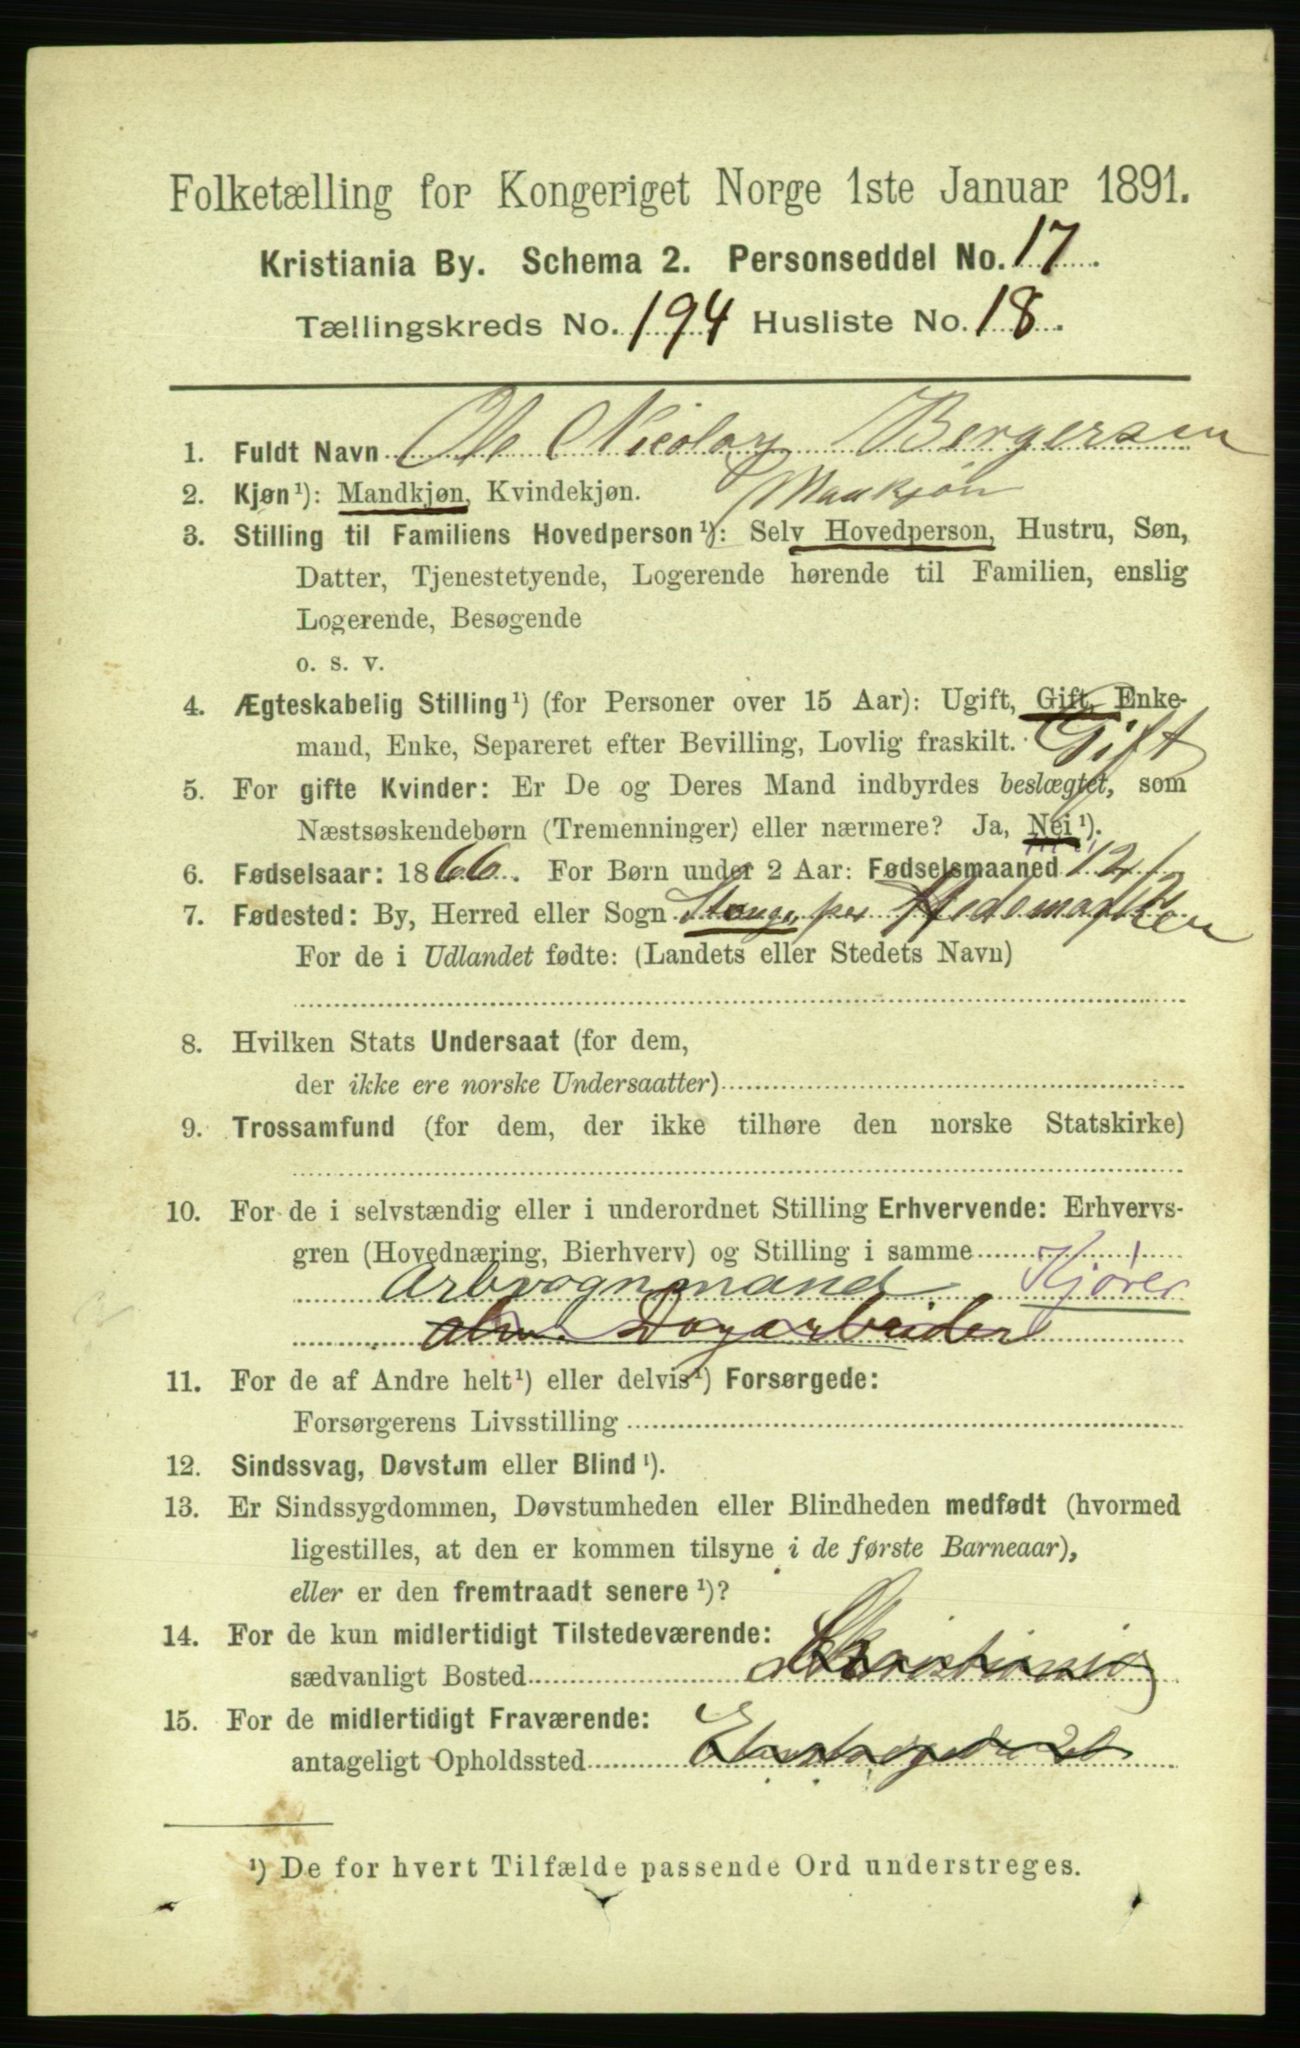 Folketælling for Kongeriget Norge 1ste Januar 1891.
Kristiania By. Schema 2. Personseddel No. 17.
Tællingskreds No. 194 Husliste No. 18.
1. Fuldt Navn Ole Nicolay Bergersen
2. Kjøn¹): Mandkjøn, Kvindekjøn. Mankjøn
3. Stilling til Familiens Hovedperson¹): Selv Hovedperson, Hustru, Søn,
Datter, Tjenestetyende, Logerende hørende til Familien, enslig
Logerende, Besøgende
o. s. v.
4. Ægteskabelig Stilling¹) (for Personer over 15 Aar): Ugift, Gift, Enke-
mand, Enke, Separeret efter Bevilling, Lovlig fraskilt. Gift
5. For gifte Kvinder: Er De og Deres Mand indbyrdes beslægtet, som
Næstsøskendebørn (Tremenninger) eller nærmere? Ja, Nei¹).
6. Fødselsaar: 1866. For Børn under 2 Aar: Fødselsmaaned 12/1
7. Fødested: By, Herred eller Sogn Stange, per Hedemarken
For de i Udlandet fødte: (Landets eller Stedets Navn)
8. Hvilken Stats Undersaat (for dem,
der ikke ere norske Undersaatter)
9. Trossamfund (for dem, der ikke tilhøre den norske Statskirke)
10. For de i selvstændig eller i underordnet Stilling Erhvervende: Erhvervs-
gren (Hovednæring, Bierhverv) og Stilling i samme
Arbvognmand Kjører
alm. Dagarbeider
11. For de af Andre helt¹) eller delvis¹) Forsørgede:
Forsørgerens Livsstilling
12. Sindssvag, Døvstum eller Blind¹).
13. Er Sindssygdommen, Døvstumheden eller Blindheden medfødt (hvormed
ligestilles, at den er kommen tilsyne i de første Barneaar),
eller er den fremtraadt senere¹)?
14. For de kun midlertidigt Tilstedeværende:
sædvanligt Bosted Kristiania
15. For de midlertidigt Fraværende:
antageligt Opholdssted
¹) De for hvert Tilfælde passende Ord understreges.